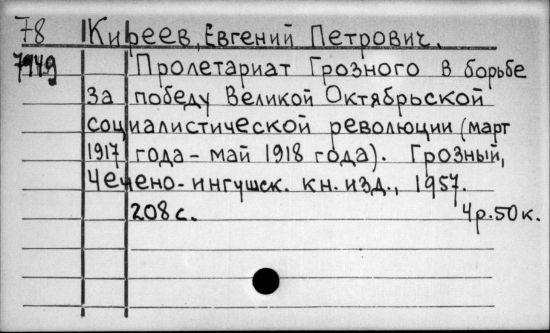 78 Киреев, Евгений Петрович.
7949 Пролетариат Грозного в борьбе
за победу Великой Октябрьской
социалистической революции (март
1917 года - май 1918 года). Грозный,
Чечено-ингушск. кн. изд., 1957.
208 с. 4р.50к.